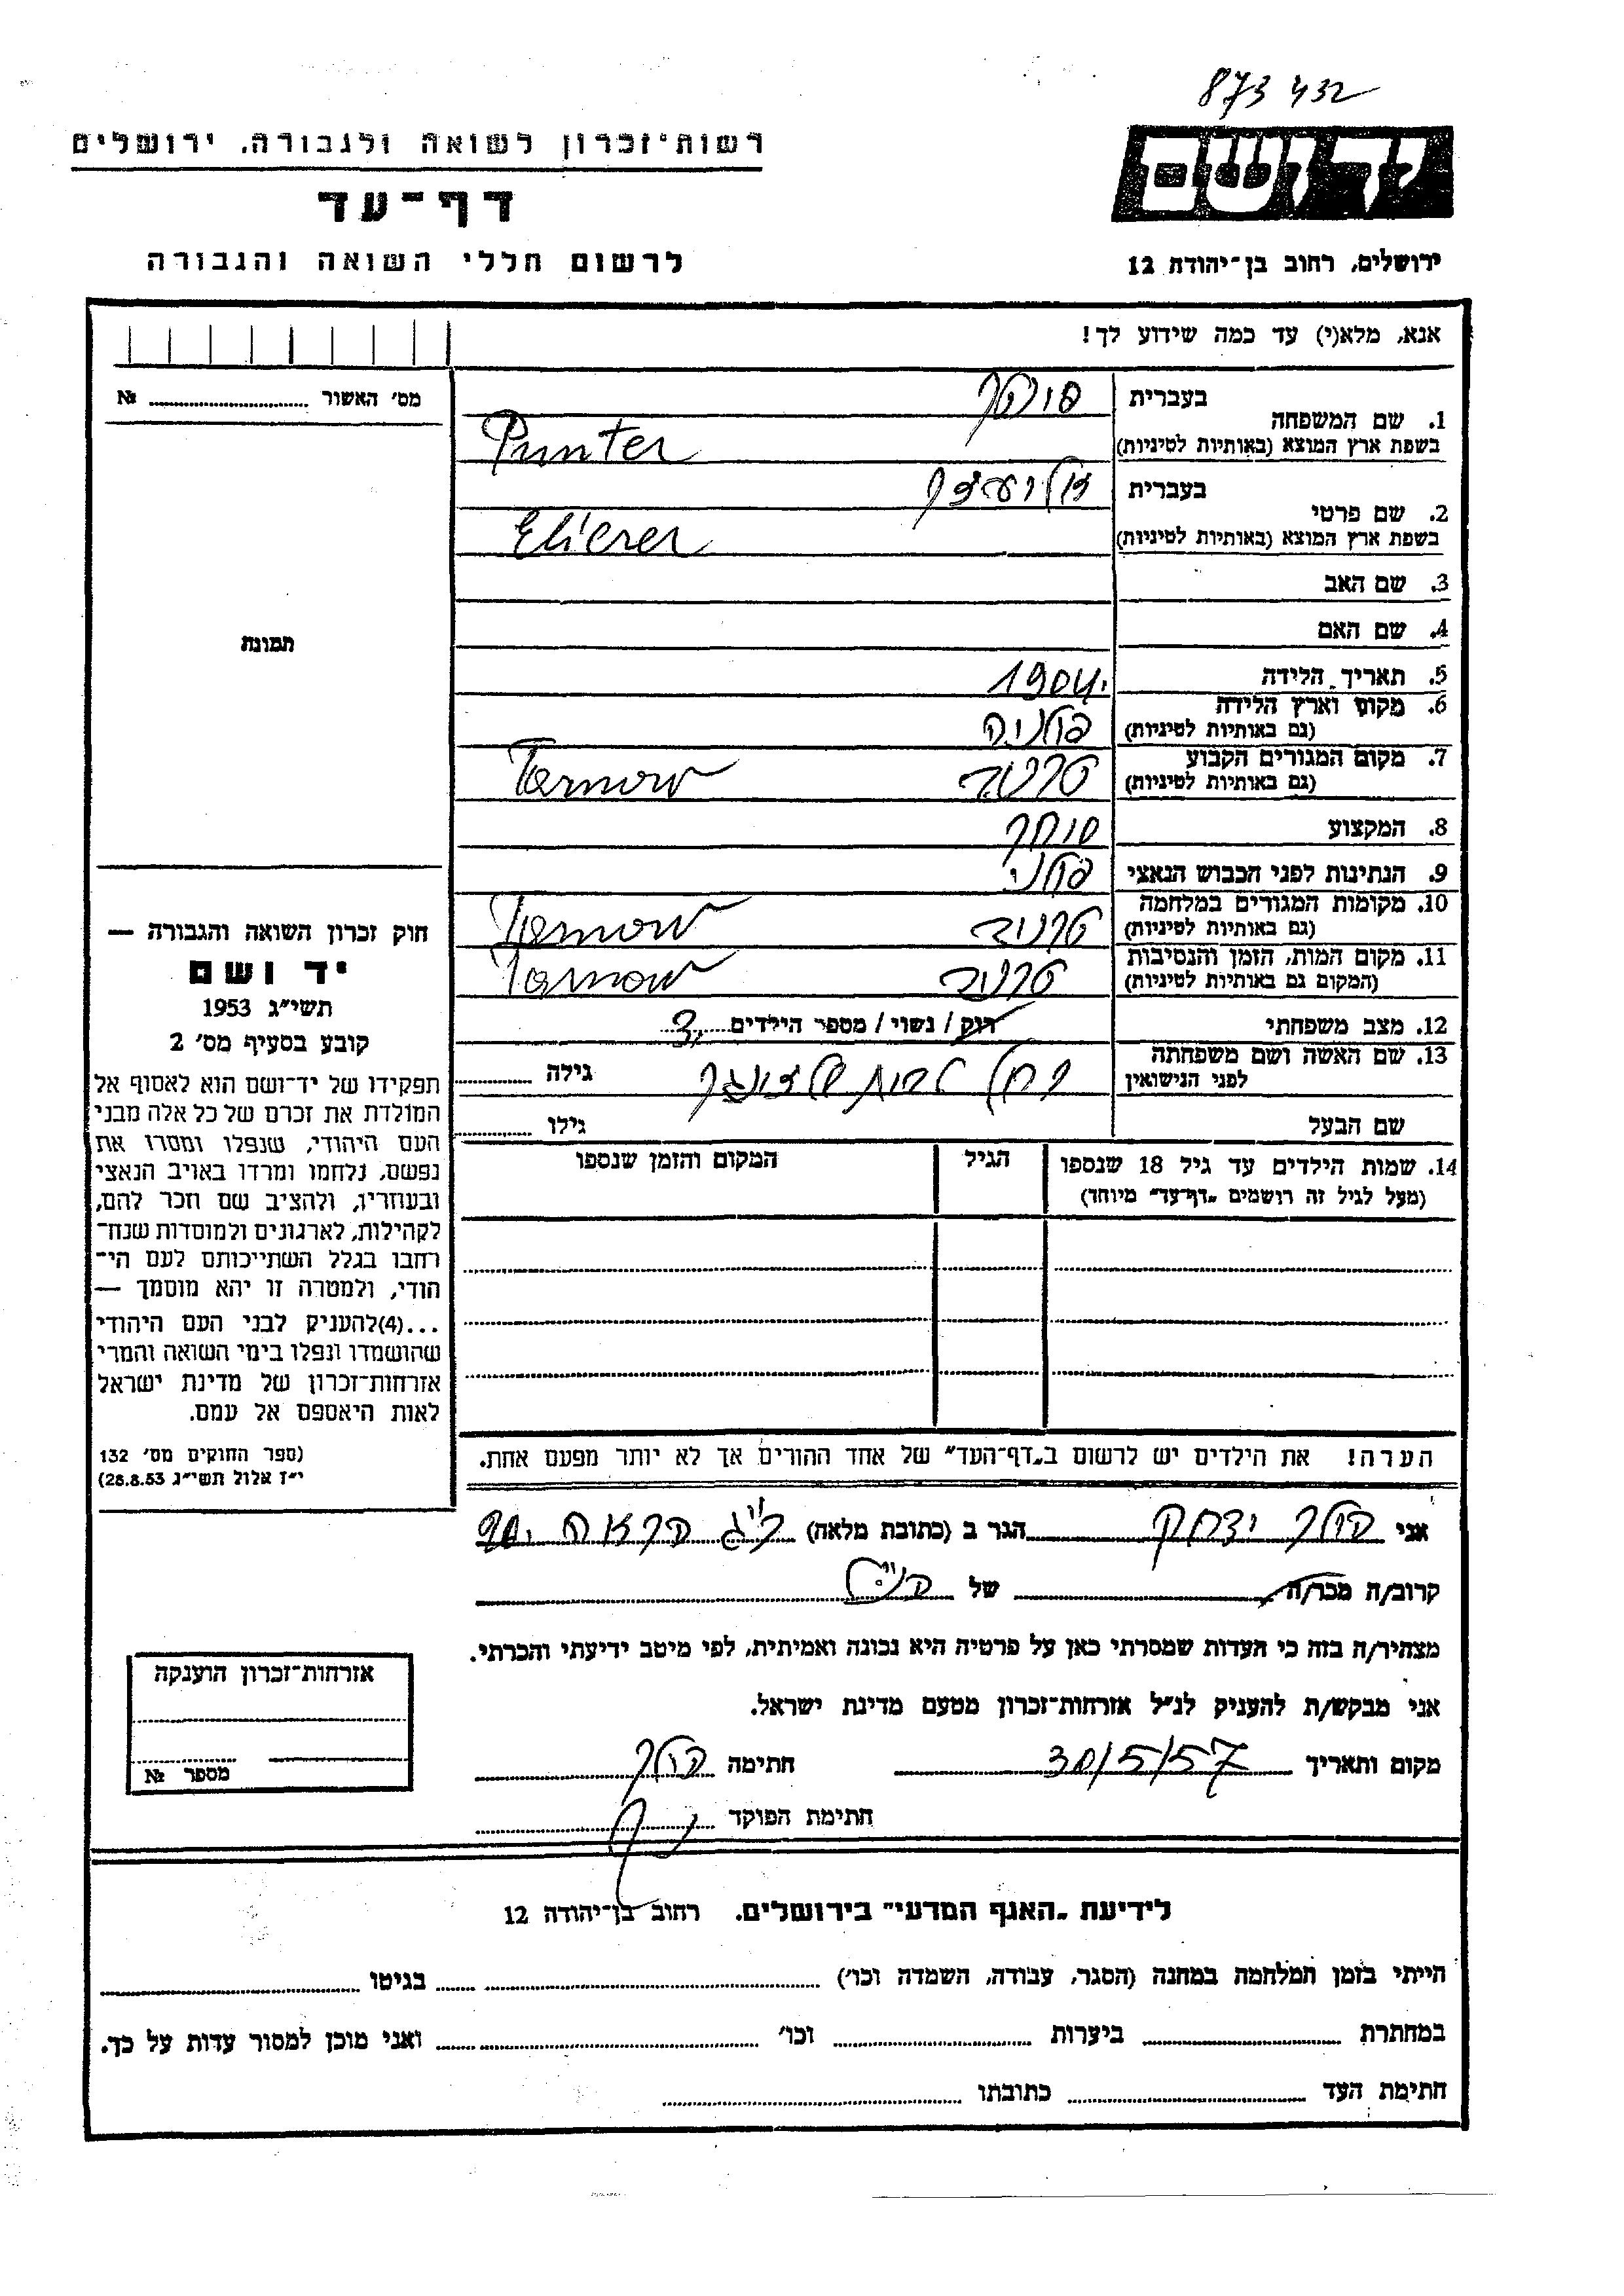 873432
רשות־זכרון לשואה ולגבורה. ירושלים
דף־עד
לרשום חללי השואה והגבורה
יד ושם
ירושלים, רחוב בן־יהודה 12
אנא, מלא(י) עד כמה שידוע לך!
מס׳ האשור № 
1. שם המשפחה בעברית פונטר
בשפת ארץ המוצא (באותיות לטיניות) Punter
2. שם פרטי בעברית אליעזר
בשפת ארץ המוצא (באותיות לטיניות) Eliezer
3. שם האב
4. שם האם
תמונה
5. תאריך הלידה 1904
6. מקום וארץ הלידה פולניה
(גם באותיות לטיניות)
7. מקום המגורים הקבוע טרנוב Tarnow
(גם באותיות לטיניות)
8. המקצוע סוחר
9. הנתינות לפני הכבוש הנאצי פולני
10. מקומות המגורים במלחמה טרנוב Tarnow
(גם באותיות לטיניות)
11. מקום המות, הזמן והנסיבות טרנוב Tarnow
(המקום גם באותיות לטיניות)
12. מצב משפחתי רוק / נשוי / מספר הילדים 3
13. שם האשה ושם משפחתה
לפני הנישואין רחל לבית גילה
שם הבעל גילו
14. שמות הילדים עד גיל 18 שנספו הגיל המקום והזמן שנספו
(מעל לגיל זה רושמים "דף־עד" מיוחד)
הערה! את הילדים יש לרשום ב"דף־העד" של אחד ההורים אך לא יותר מפעם אחת.
חוק זכרון השואה והגבורה —
יד ושם
תשי״ג 1953
קובע בסעיף מס׳ 2
תפקידו של יד־ושם הוא לאסוף אל
המולדת את זכרם של כל אלה מבני
העם היהודי, שנפלו ומסרו את
נפשם, נלחמו ומרדו באויב הנאצי
ובעוזריו, ולהציב שם וזכר להם,
לקהילות, לארגונים ולמוסדות שנח־
רבו בגלל השתייכותם לעם הי־
הודי, ולמטרה זו יהא מוסמך —
...(4) להעניק לבני העם היהודי
שהושמדו ונפלו בימי השואה והמרי
אזרחות־זכרון של מדינת ישראל
לאות היאספם אל עמם.
(ספר החוקים מס׳ 132
י״ז אלול תשי״ג 28.8.53)
אני יצחק הגר ב (כתובת מלאה)
קרוב/ה מכר/ה של
מצהיר/ה בזה כי העדות שמסרתי כאן על פרטיה היא נכונה ואמיתית, לפי מיטב ידיעתי והכרתי.
אני מבקש/ת להעניק לנ״ל אזרחות־זכרון מטעם מדינת ישראל.
מקום ותאריך 30/5/57 חתימה
חתימת הפוקד
אזרחות־זכרון הוענקה
מספר №
לידיעת "האגף המדעי" בירושלים. רחוב בן־יהודה 12
הייתי בזמן המלחמה במחנה (הסגר, עבודה, השמדה וכו׳) בגיטו
במחתרת ביערות וכו׳ ואני מוכן למסור עדות על כך.
חתימת העד כתובתו